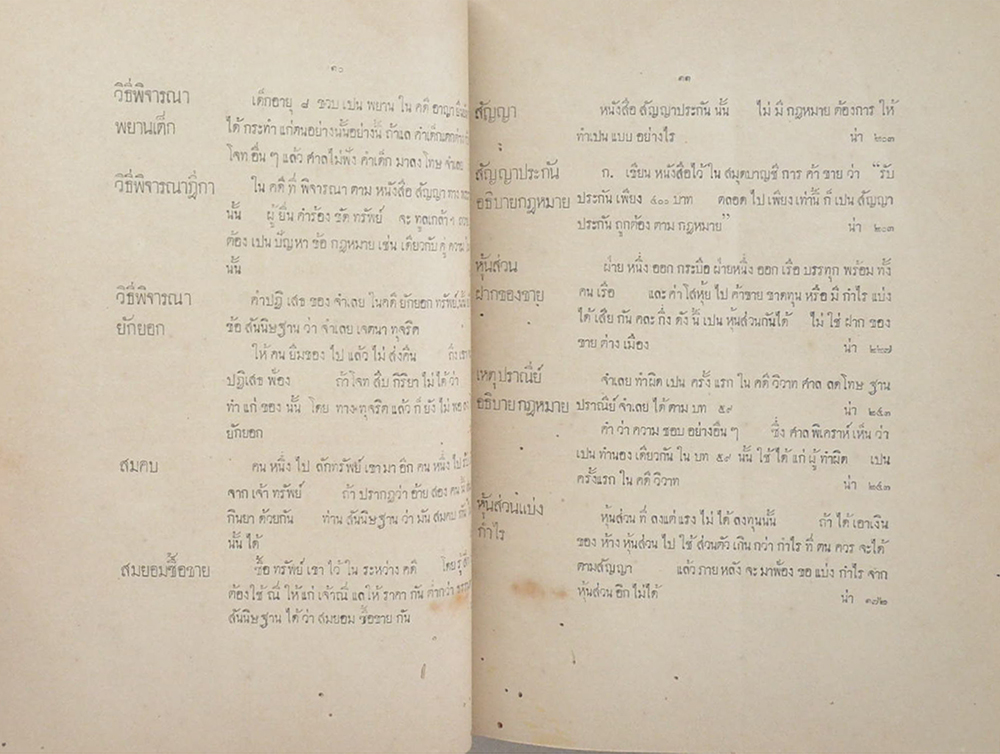 ๓๐
วิธีพิจารณา
พยานเด็ก
เด็กอายุ ๘ ขวบ เปน พยาน ใน คดี อาญา
ได้ กระทำ แก่ตนอย่างนั้นอย่างนี้ ถ้าแล คำเด็กแตกต่าง
โจท อื่น ๆ แล้ว ศาลไม่ฟัง คำเด็ก มาลง โทษ จำเลย
วิธีพิจารณาฎีกา
ใน คดี ที่ พิจารณา ตาม หนังสือ สัญญา ทาง
นั้น ผู้ ยื่น คำร้อง ขัด ทรัพย์ จะ ทูลเกล้า ฯ
ต้อง เปน ปัญหา ข้อ กฎหมาย เช่น เดียวกับ คู่ ความ
นั้น
วิธีพิจารณา
ยักยอก
คำปฏิ เสธ ของ จำเลย ในคดี ยักยอก ทรัพย์
ข้อ สันนิษฐาน ว่า จำเลย เจตนา ทุจริต
ให้ คน ยืมของ ไป แล้ว ไม่ ส่งคืน
ปฏิเสธ ฟ้อง ถ้า โจท สืบ กิริยา ไม่ ได้ ว่า
ทำ แก่ ของ นั้น โดย ทางทุจริต แล้ว ก็ ยัง ไม่ พอ
ยักยอก
สมคบ
คน หนึ่ง ไป ลักทรัพย์ เขา มา อีก คน หนึ่ง ไป
จาก เจ้า ทรัพย์ ถ้า ปรากฏว่า อ้าย สอง คน
กินยา ด้วยกัน ท่าน สันนิษฐาน ว่า มัน สมคบ กัน
นั้น ได้
สมยอมซื้อขาย
ซื้อ ทรัพย์ เขา ไว้ ใน ระหว่าง คดี โดย รู้
ต้อง ใช้ ณี่ ให้ แก่ เจ้าณี่ แลให้ ราคา กัน ต่ำกว่า
สันนิษฐาน ได้ ว่า สมยอม ซื้อขาย กัน
๓๑
สัญญา
หนังสือ สัญญาประกัน นั้น ไม่ มี กฎหมาย ต้องการ ให้
ทำเปน แบบ อย่างไร น่า ๒๐๓
สัญญาประกัน
อธิบายกฎหมาย
ก. เขียน หนังสือไว้ ใน สมุดบาญชี การ ค้า ขาย ว่า “รับ
ประกัน เพียง ๔๐๐ บาท ตลอด ไป เพียง เท่านี้ ก็ เปน สัญญา
ประกัน ถูกต้อง ตาม กฎหมาย” น่า ๒๐๓
หุ้นส่วน
ฝากของขาย
ฝ่าย หนึ่ง ออก กระบือ ฝ่ายหนึ่ง ออก เรือ บรรทุก พร้อม ทั้ง
คน เรือ และ ค่า โสหุ้ย ไป ค้าขาย ขาดทุน หรือ มี กำไร แบ่ง
ได้ เสีย กัน คละ กึ่ง ดัง นี้ เปน หุ้นส่วนกันได้ ไม่ ใช่ ฝาก ของ
ขาย ต่าง เมือง น่า ๒๒๗
เหตุปราณีย์
อธิบายกฎหมาย
จำเลย ทำผิด เปน ครั้ง แรก ใน คดี วิวาท ศาล ลดโทษ ฐาน
ปราณีย์ จำเลย ได้ ตาม บท ๕๙ น่า ๒๔๓
คำ ว่า ความ ชอบ อย่างอื่น ๆ ซึ่ง ศาล พิเคราห์ เห็น ว่า
เปน ทำนอง เดียวกัน ใน บท ๕๙ นั้น ใช้ ได้ แก่ ผู้ ทำผิด เปน
ครั้งแรก ใน คดี วิวาท น่า ๒๔๓
หุ้นส่วนแบ่ง
กำไร
หุ้นส่วน ที่ ลงแต่ แรง ไม่ ได้ ลงทุนนั้น ถ้า ได้ เอาเงิน
ของ ห้าง หุ้นส่วน ไป ใช้ ส่วนตัว เกิน กว่า กำไร ที่ ตน ควร จะได้
ตามสัญญา แล้ว ภาย หลัง จะ มาฟ้อง ขอ แบ่ง กำไร จาก
หุ้นส่วน อีก ไม่ได้ น่า ๑๗๒